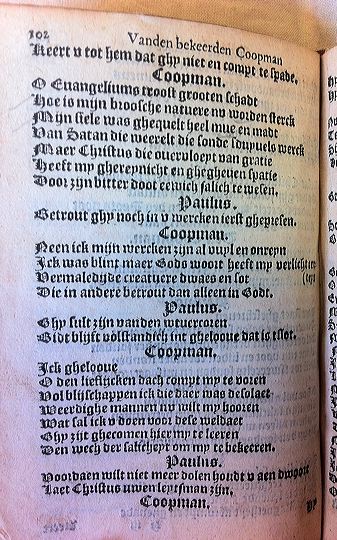 102 Vanden bekeerden Coopman
Keert v tot hem dat ghy niet en compt te spade.
Coopman.
O Euangeliums troost grooten schadt
Hoe is mijn broosche natuere nv worden sterck
Mijn siele was ghequelt heel mue en madt
Van Satan die weerelt die sonde sduyuels werck
Maer Christus die ouervloeyt van gratie
Heeft my ghereynicht en ghegheuen spatie
Door zijn bitter doot eewich salich te wesen.
Paulus.
Betrout ghy noch in v wercken ierst ghepresen.
Coopman.
Neen ick mijn wercken zijn al vuyl en onreyn
Ick was blint maer Gods woort heeft my verlicht
Vermaledijde creatuere dwaes en sot
Die in andere betrout dan alleen in Godt.
Paulus.
Ghy sult zijn vanden
Bidt blijft volstandich int ghelooue dat is tslot.
Coopman.
Ick ghelooue
O den lieflijcken dach compt my te voren
Vol blijschappen ick die daer was desolaet
Weerdighe mannen nv wilt my hooren
Wat sal ick v doen voor dese weldaet
Ghy zijt ghecomen hier my te leeren
Den wech der salicheyt om my te bekeeren.
Paulus.
Voordaen wilt niet meer dolen houdt v aen
Laet Christus uwen leytsman zijn.
Coopman.